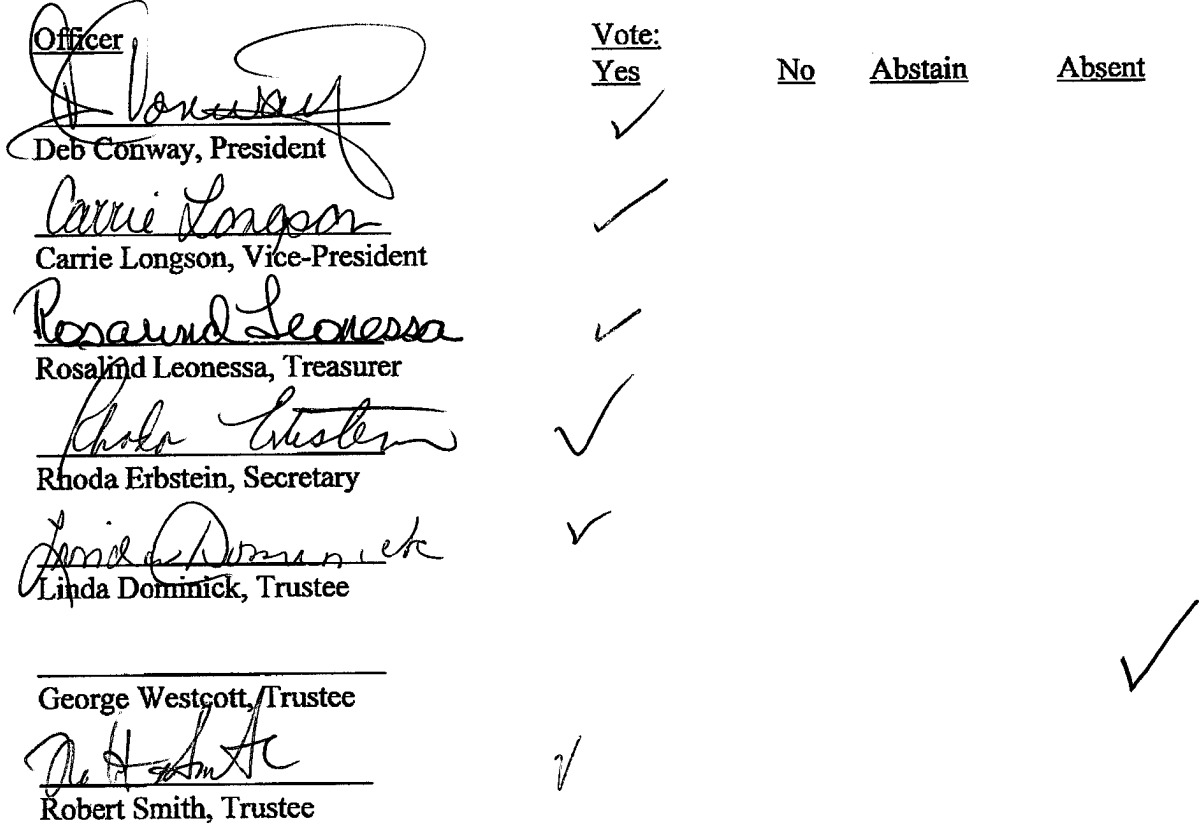 Officer Vote:
Yes No Abstain Absent
D Conway ✓
Deb Conway, President
Carrie Longson ✓
Carrie Longson, Vice-President
Rosalind Leonessa ✓
Rosalind Leonessa, Treasurer
Rhoda Erbstein ✓
Rhoda Erbstein, Secretary
Linda Dominick ✓
Linda Dominick, Trustee
✓
George Westcott, Trustee
✓
Robert Smith, Trustee